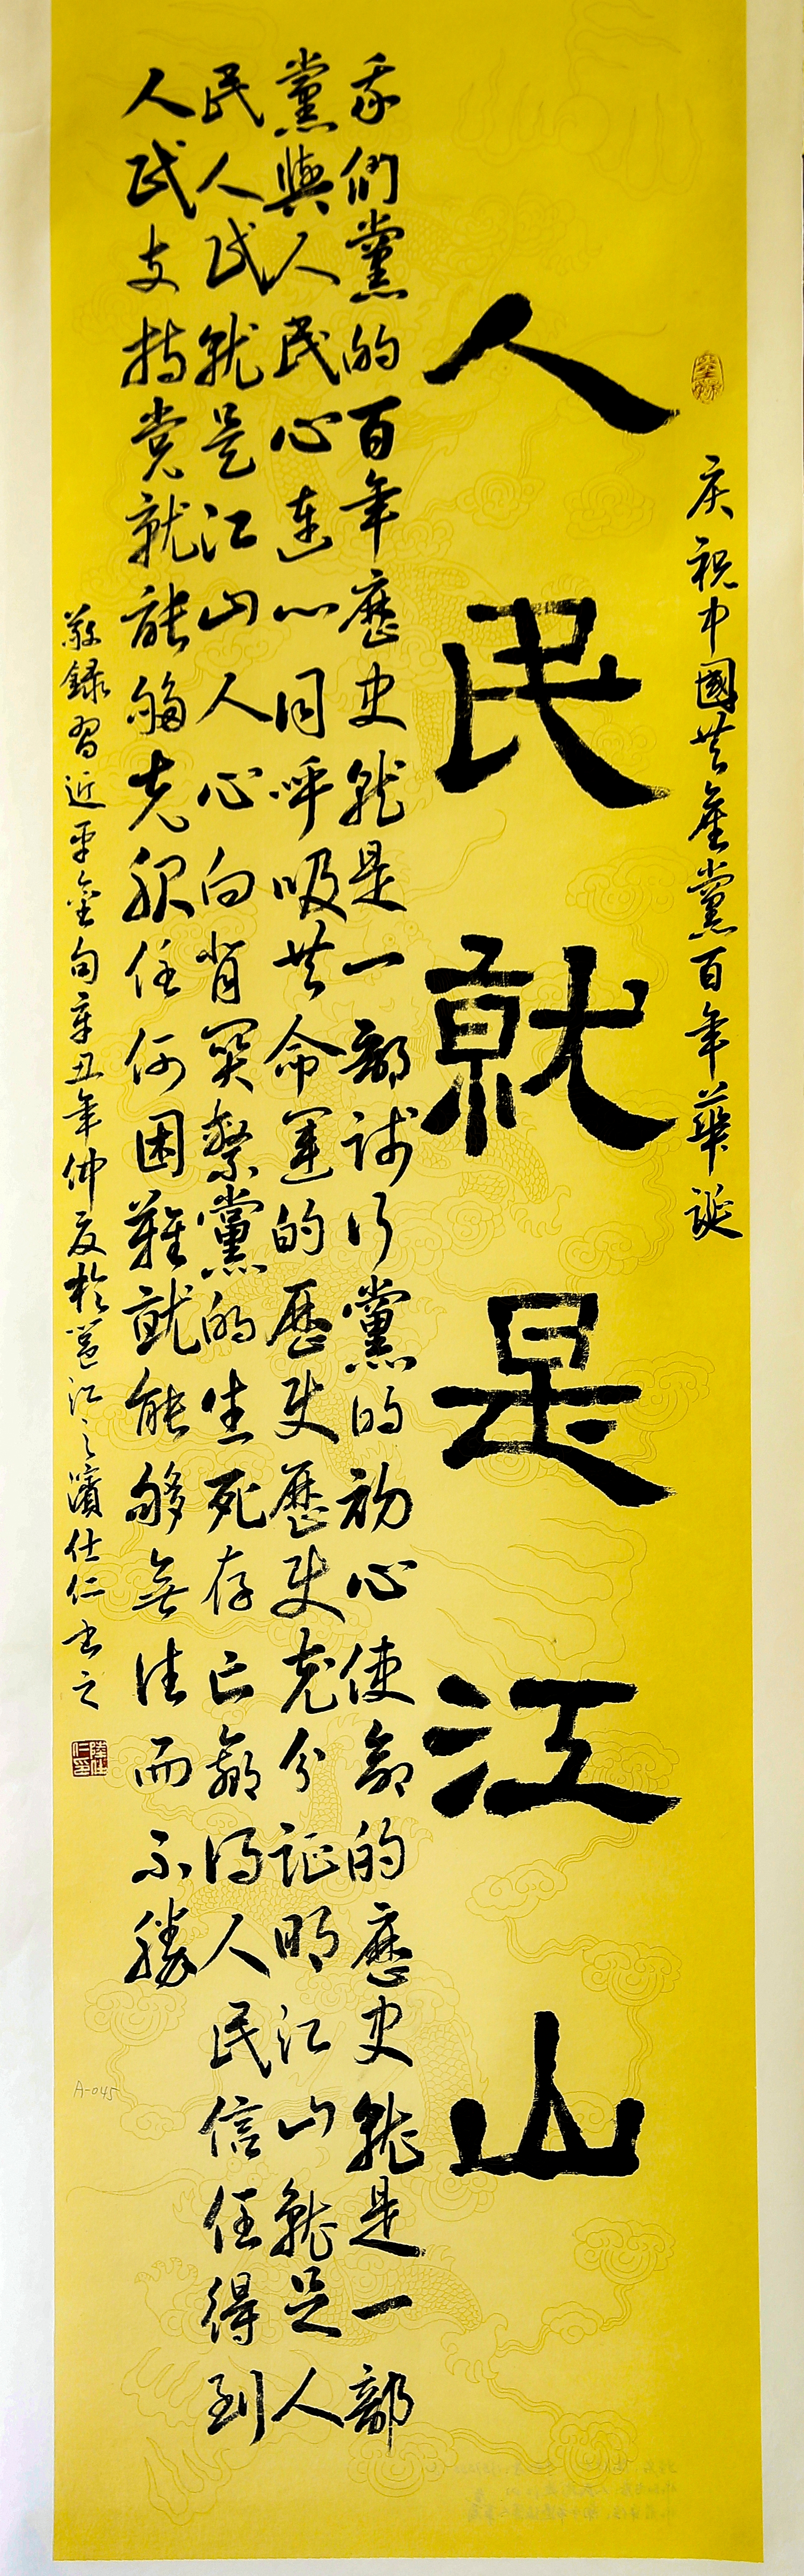 庆祝中國共產黨百年華誕
人民就是江山
我們黨的百年歷史就是一部践行黨的初心使命的歷史就是一部
黨與人民心連心同呼吸共命運的歷史歷史充分証明江山就是人
民人民就是江山人心向背関繫黨的生死存亡赢得人民信任得到
人民支持党就能够克服任何困難就能够無往而不勝
敬録習近平金句辛丑年仲夏於邕江之濱仕仁書之
陸仕仁印
A-045